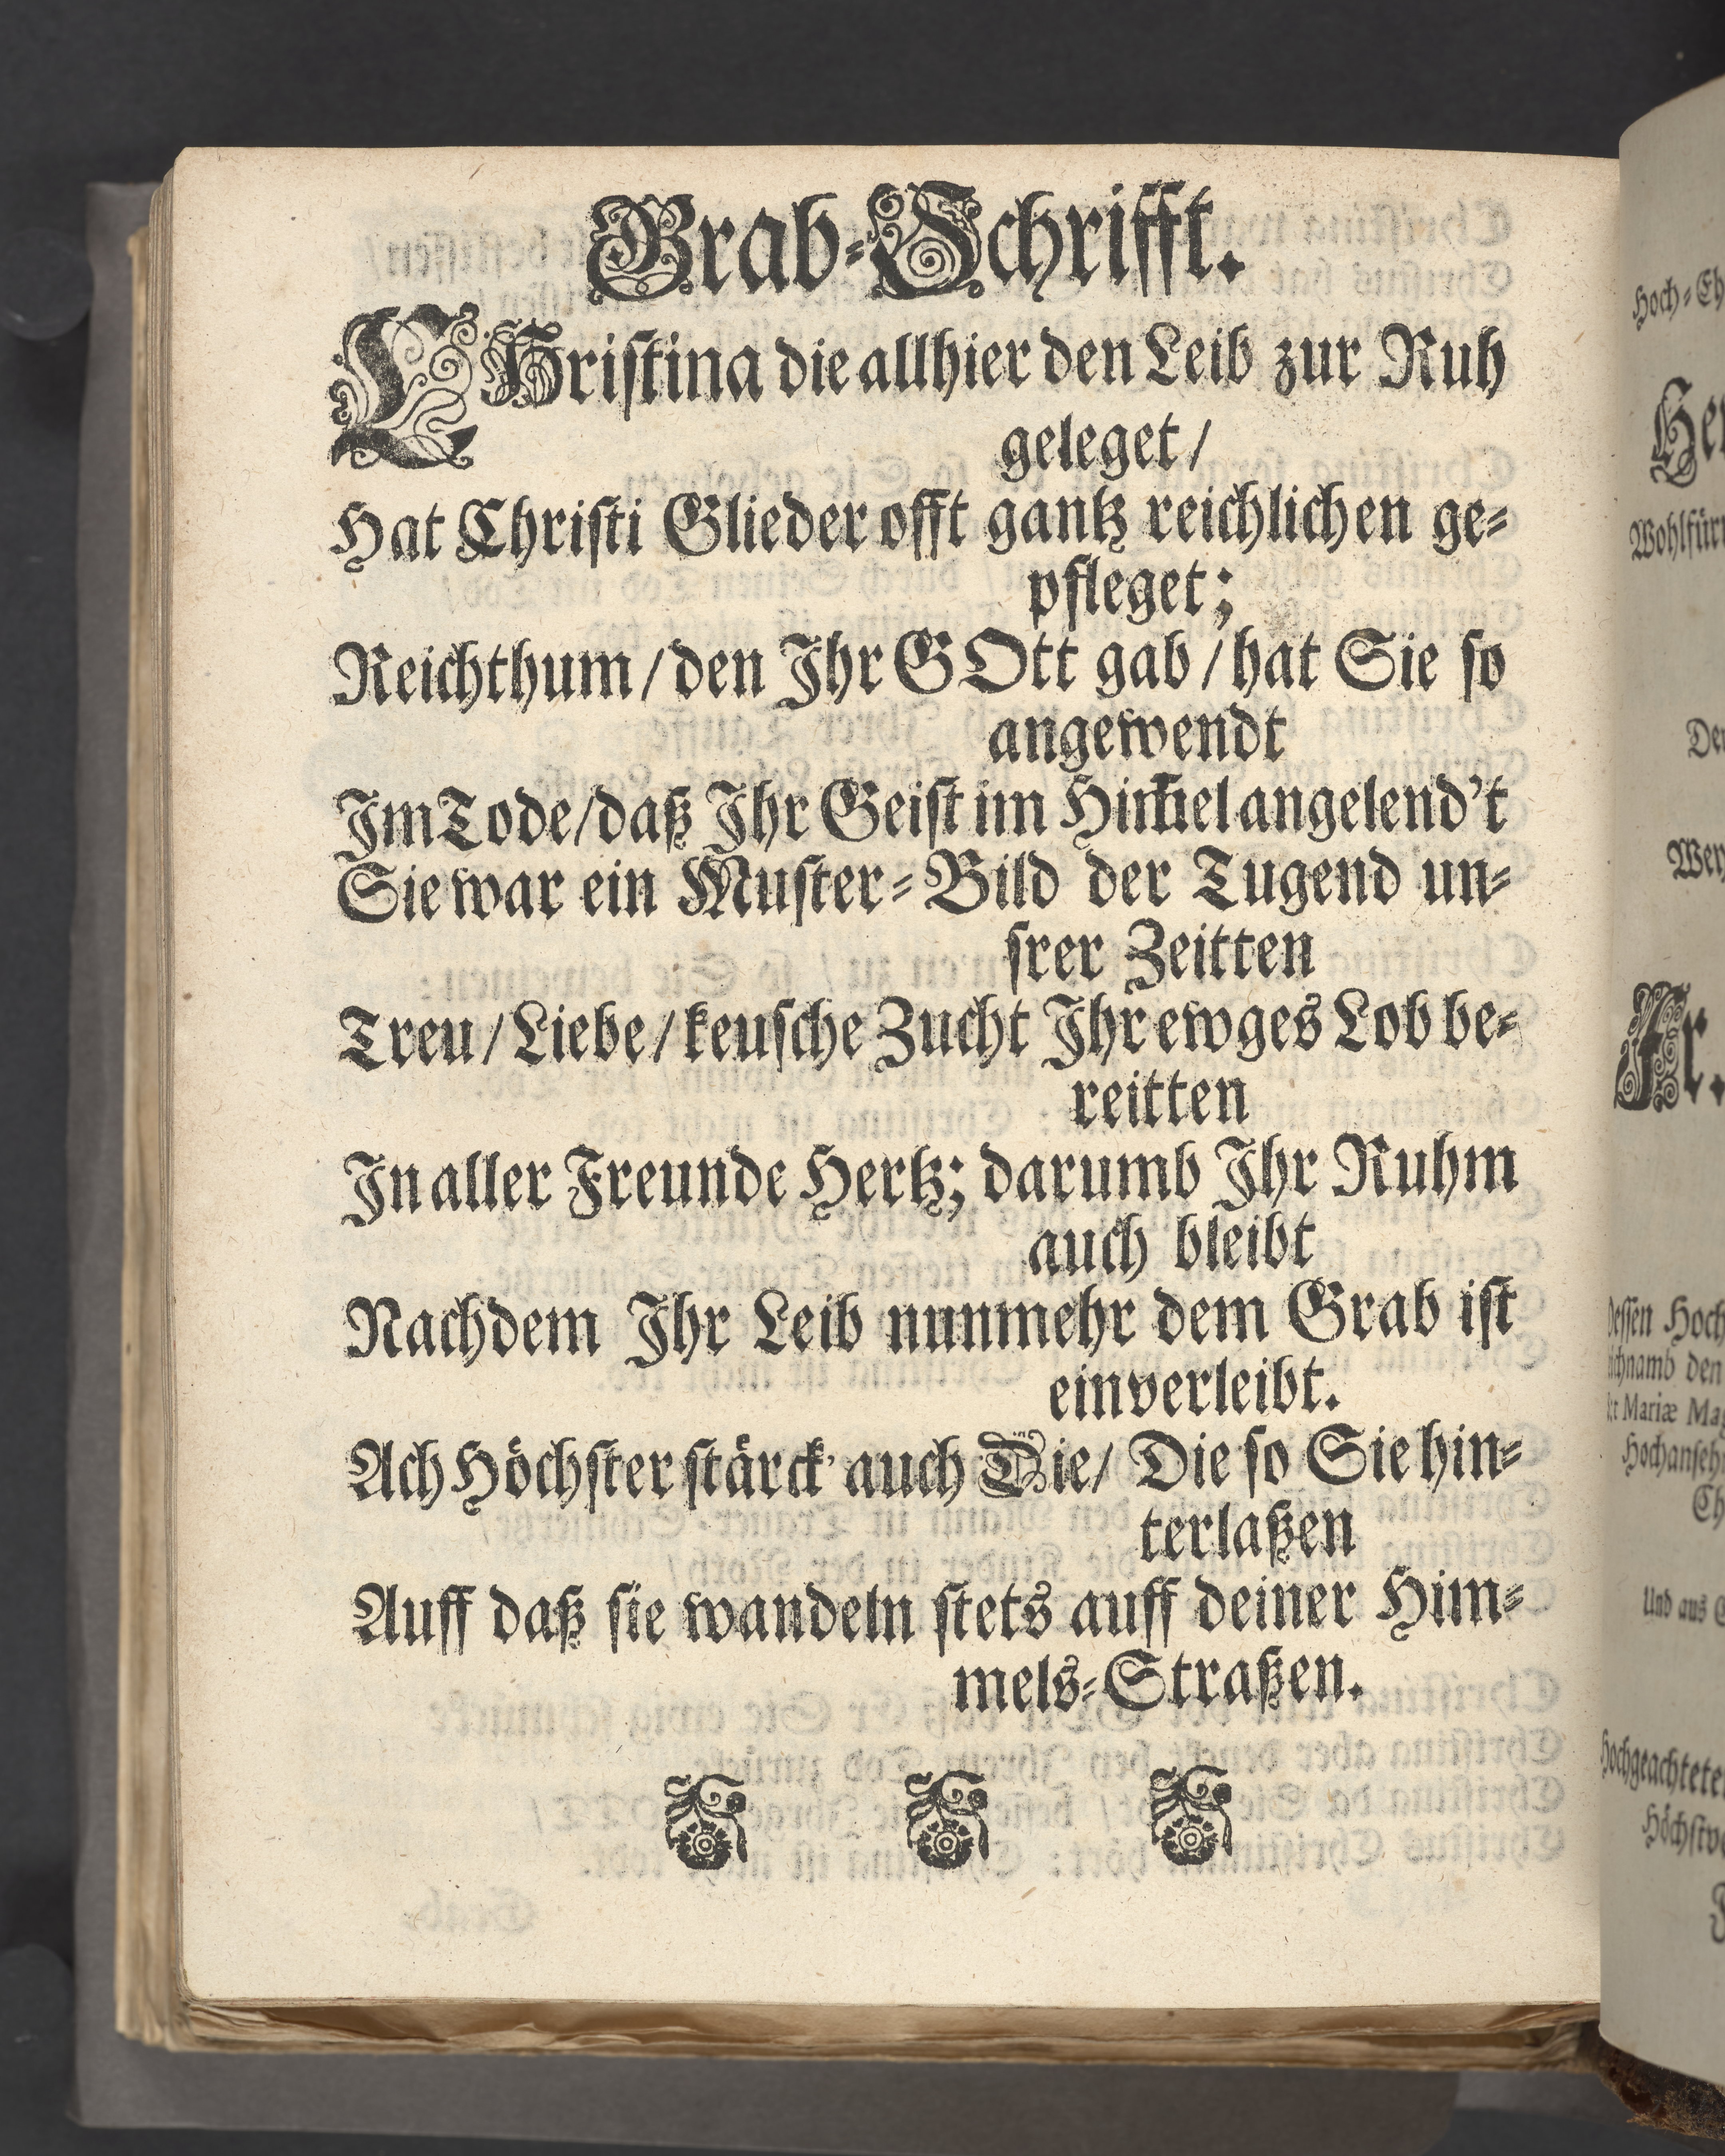 Grab-Schrifft.
CHristina die allhier den Leib zur Ruh
geleget/
Hat Christi Glieder offt gantz reichlichen ge-
pfleget;
Reichthum/den Ihr GOtt gab/hat Sie so
angewendt
Im Tode/daß Ihr Geist im Him̃el angelend't
Sie war ein Muster-Bild der Tugend un-
srer Zeitten
Treu/Liebe/keusche Zucht Ihr ewges Lob be-
reitten
In aller Freunde Hertz; darumb Ihr Ruhm
auch bleibt
Nachdem Ihr Leib nunmehr dem Grab ist
einverleibt.
Ach Höchster stärck' auch Die/ Die so Sie hin-
terlaßen
Auff daß sie wandeln stets auff deiner Him-
mels-Straßen.
Hoch-Eh
Wohlfür
Fr.
Dessen Hoch
den
Mariæ Mag
Hochanseh
Und aus
Hochgeachtete